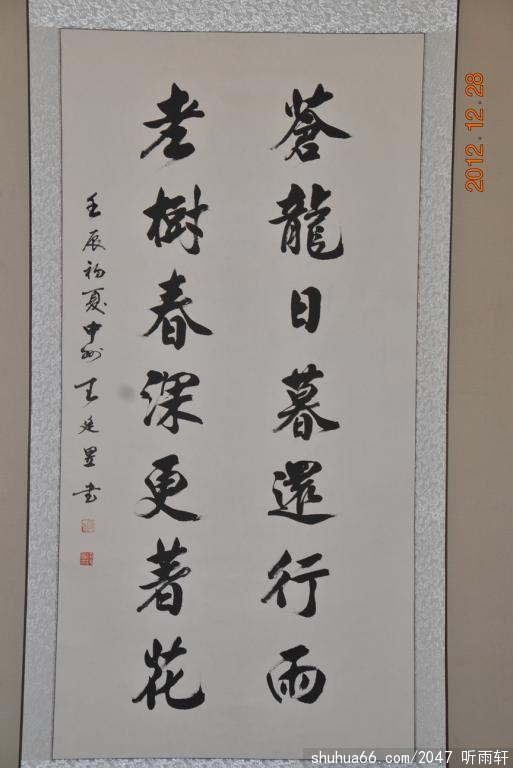 蒼龍日暮還行雨
老樹春深更著花
壬辰初夏中州王廷昱书
2012.12.28
shuhua66.com/2047 听雨轩